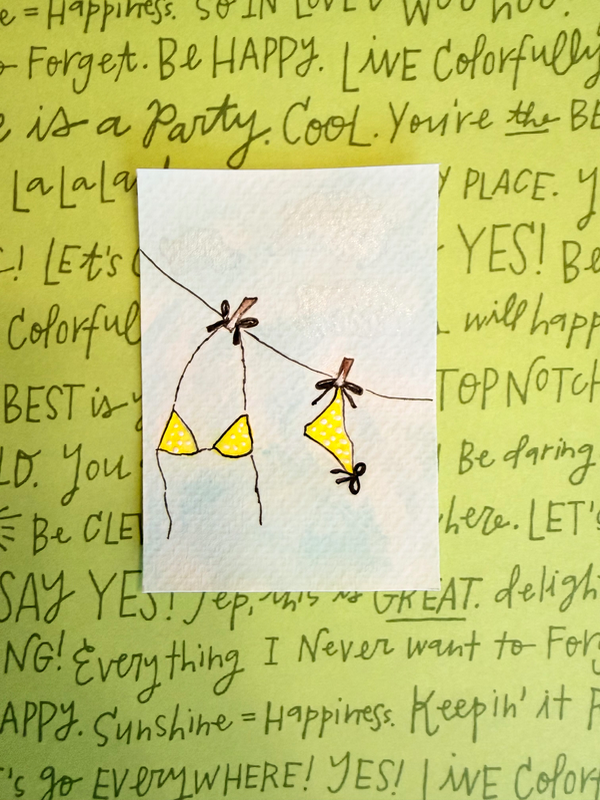 = Happiness. SO IN LOVE WOO HOO!
Forget. Be HAPPY. LiVE Colorfully
is a Party. COOL. You're the BE
LaLaLa PLACE.
! LEt's YES! Be
Colorful will happ
BEST is TOP NOTCH
You Be daring
Be CLE here. LET's
SAY YES! Yep, this is GREAT. delight
NG! Everything I Never want to Forg
APPY. Sunshine = Happiness. Keepin' it
's go EVERYWHERE! YES! LiVE Color